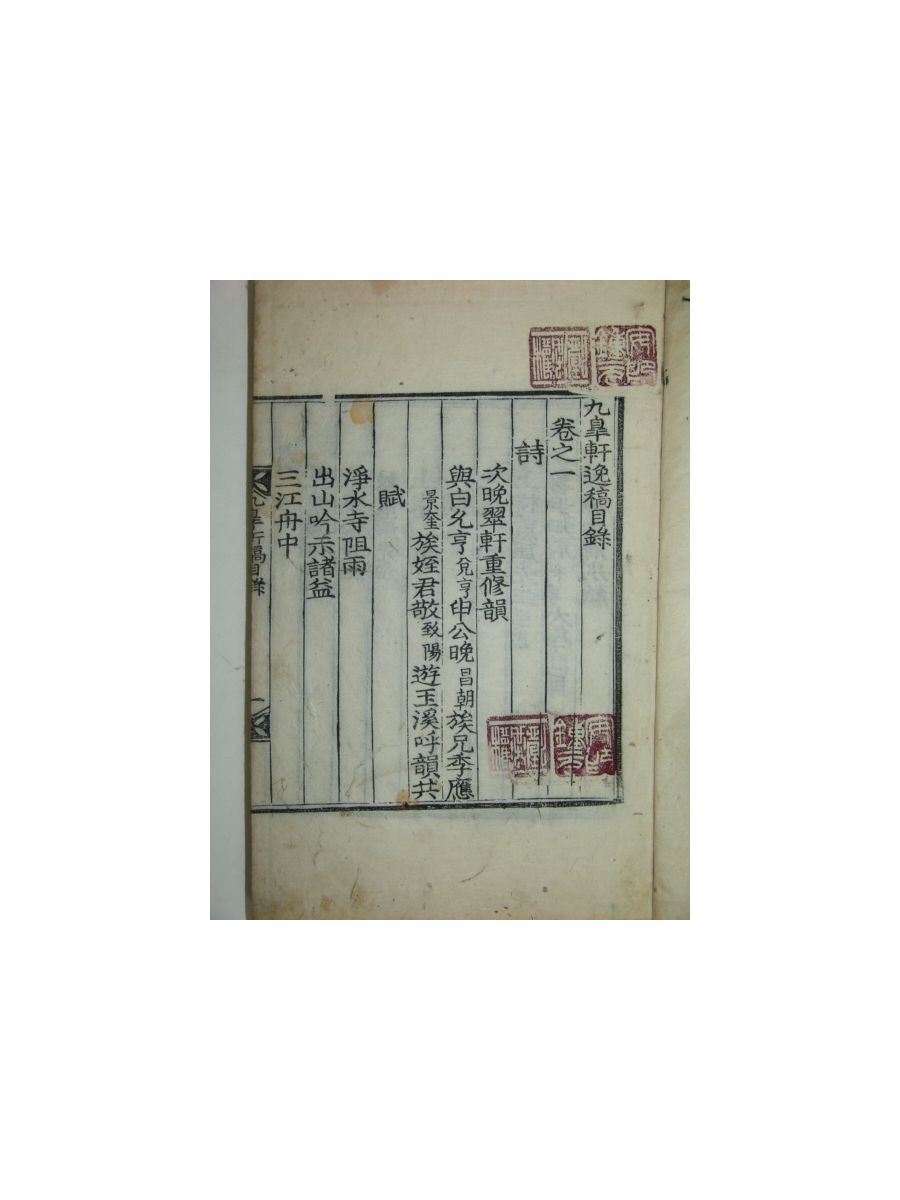 九皐軒逸稿目錄
卷之一
詩
次晩翠軒重修韻
與白允亨兌亨申公晩昌朝族兄季應
景奎族姪君敬致陽遊玉溪呼韻共
賦
淨水寺阻雨
出山吟示諸益
三江舟中